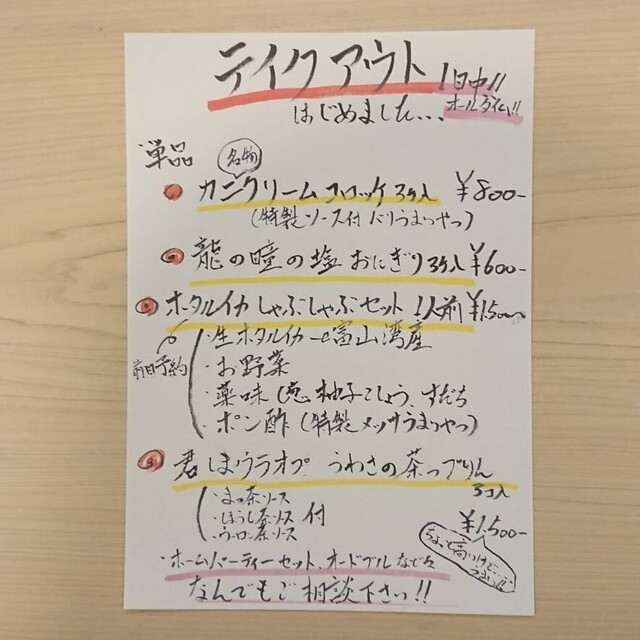 テイクアウト
1日中!!
オールタイム!!
はじめました...
単品
名物
カニクリームコロッケ 3ヶ入 ¥800-
(特製ソース付 バリうまいやつ)
龍の瞳の塩おにぎり 3ヶ入 ¥600-
ホタルイカしゃぶしゃぶセット 1人前 ¥1500-
前日予約
・生ホタルイカ 富山湾産
・お野菜
・薬味(葱、柚子こしょう、すだち
・ポン酢(特製メッサうまいやつ)
君しまウラオプ うわさの茶っプりん
3コ入
・まっ茶ソース
・ほうじ茶ソース 付
・ウーロン茶ソース
¥1,500-
ちょっと高いけど...
・ホームパーティーセット、オードブルなど々
なんでもご相談下さいっ!!